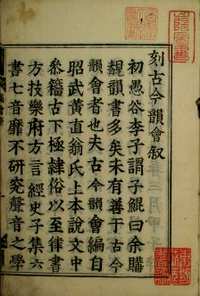 刻古今韻會叙
初愚谷李子謂子鯤曰余購
覩韻書多矣未有善于古今
韻會者也夫古今韻會編自
昭武黄直翁氏上本說文中
參籍古下極隷俗以至律書
方技樂府方言經史子集六
書七音靡不研究聲音之學